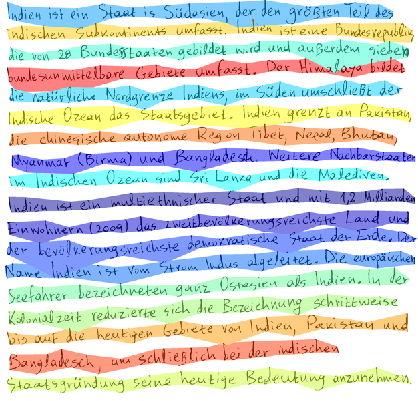 Indien ist ein Staat is Südasien, der den größten Teil des
indischen Subkontinents umfasst. Indien ist eine Bundesrepublik,
die von 28 Bundesstaaten gebildet wird und außerdem sieben
bundesunmittelbare Gebiete umfasst. Der Himalaya bildet
die natürliche Nordgrenze Indiens, im Süden umschließt der
Indische Ozean das Staatsgebiet. Indien grenzt an Pakistan,
die chinesische autonome Region Tibet, Nepal, Bhutan,
Myanmar (Birma) und Bangladesh. Weitere Nachbarstaaten
im Indischen Ozean sind Sri Lanka und die Malediven.
Indien ist ein multiethnischer Staat und mit 1,2 Milliarden
Einwohnern (2009) das zweitbevölkerungsreichste Land und
der bevölkerungsreichste demokratische Staat der Erde. Der
Name Indien ist vom Strom Indus abgeleitet. Die europäischen
Seefahrer bezeichneten ganz Ostasien als Indien. In der
Kolonialzeit reduzierte sich die Bezeichnung schrittweise
bis auf die heutigen Gebiete von Indien, Pakistan und
Bangladesch, um schließlich bei der indischen
Staatsgründung seine heutige Bedeutung anzunehmen.